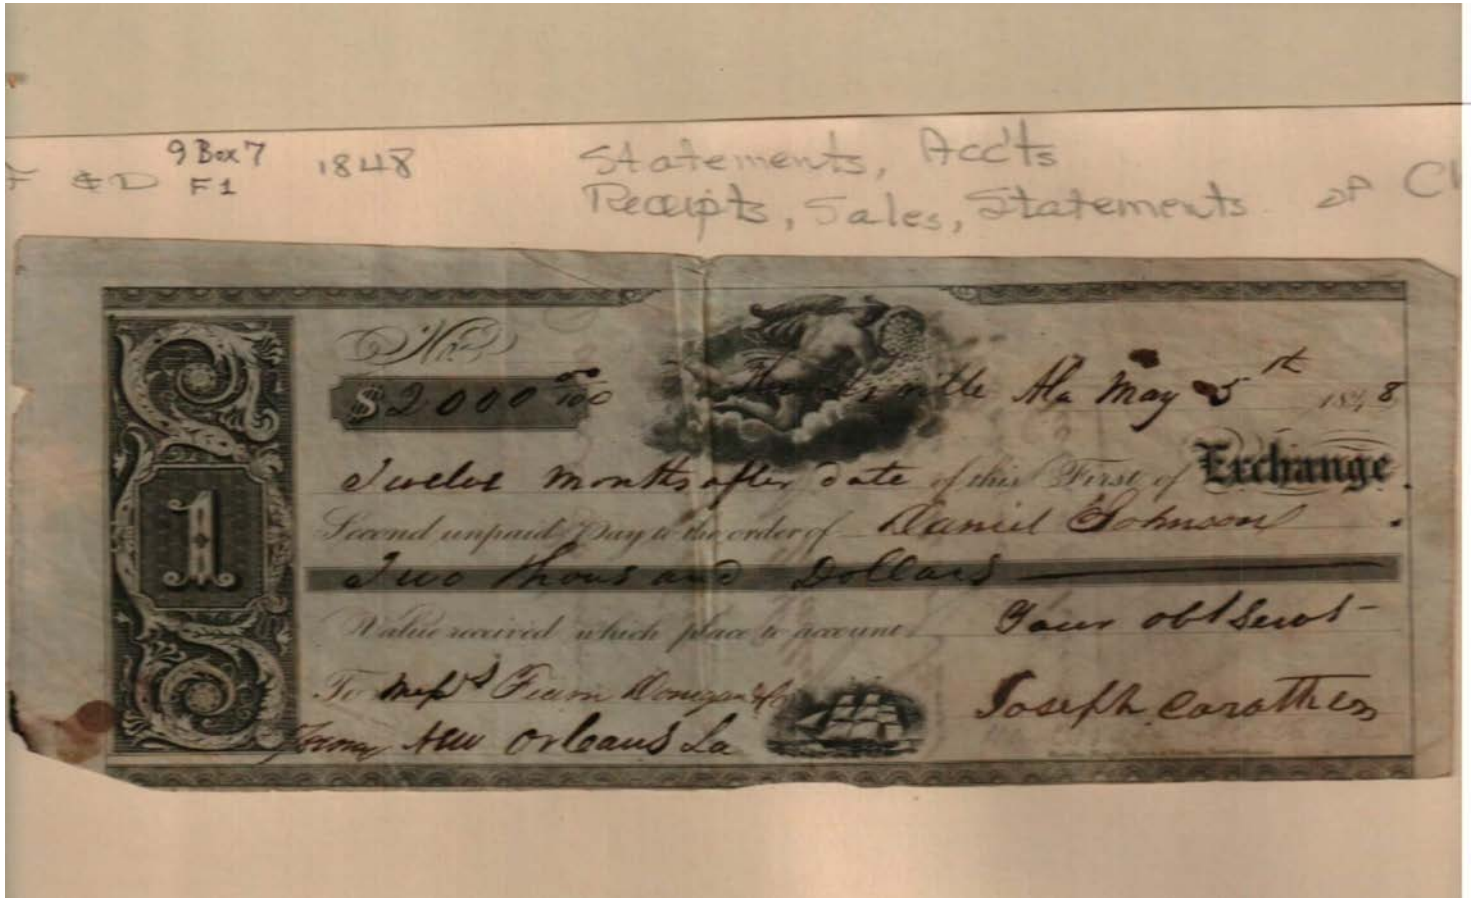 9 Box 7
F & D F1 1848
Statements, Acc'ts
Receipts, Sales, Statements
No
$2000 00/100 Huntsville Ala May 5th 1848
Twelve months after date of this First of Exchange
Second unpaid Pay to the order of Daniel Johnson
Two Thousand Dollars
Value received which place to account Your obt Servt
To Messrs Fearn Donegan & Co Joseph Carothers
New Orleans La
1